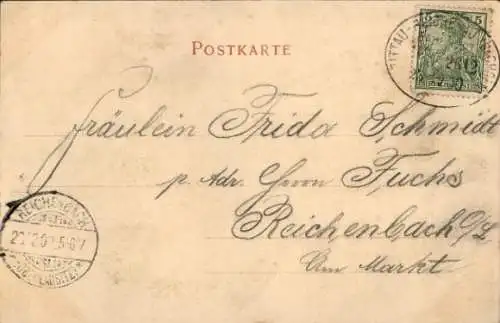 POSTKARTE
5
ZITTAU-
Fräulein Frida Schmidt
p. Adr. Herrn Fuchs
Reichenbach O/L
Am Markt
REICHENBACH
5-6